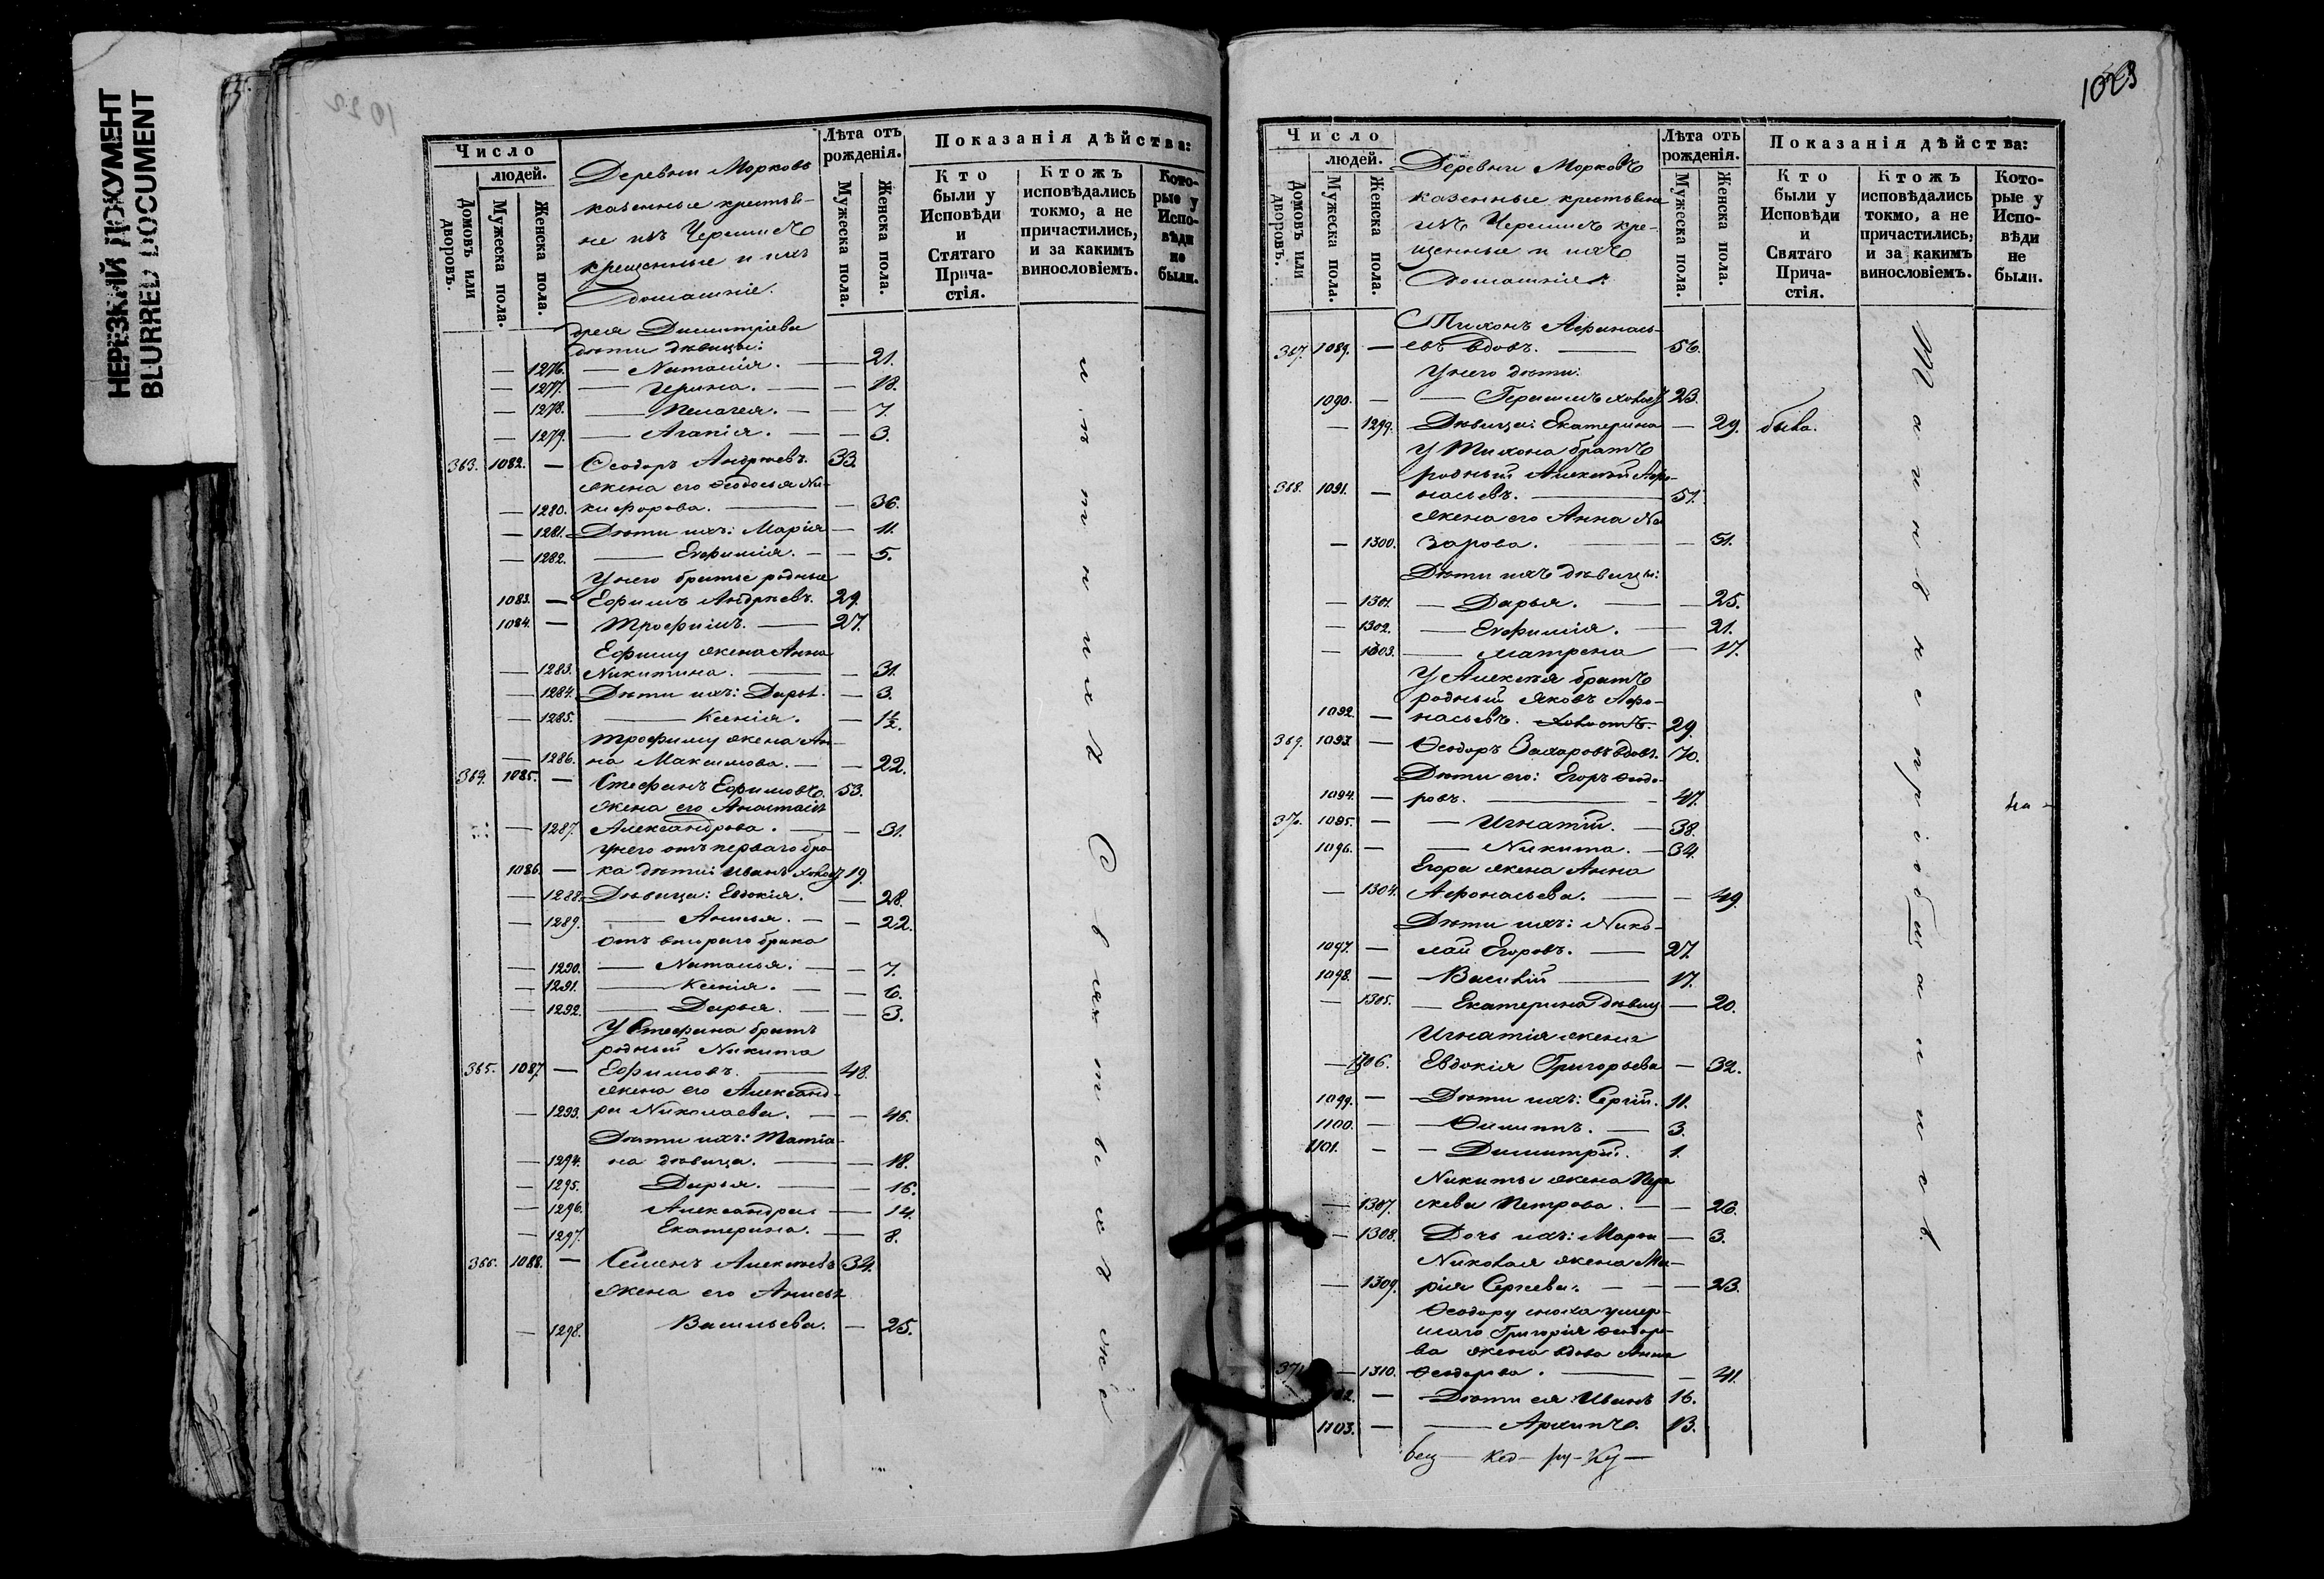 НЕРЕЗКИЙ ДОКУМЕНТ
BLURRED DOCUMENT
Число
людей.
Домовъ или дворовъ.
Мужеска пола.
Женска пола.
Деревни Морковъ
казенные крестья-
не изъ Черемисъ
крещенные и ихъ
домашніе.
Лѣта отъ рожденія.
Мужеска пола.
Женска пола.
Показанія дѣйства:
Кто были у Исповѣди и Стятаго Прича-стія.
Ктожъ исповѣдались токмо, а не причастились, и за какимъ винословіемъ.
Кото-рые у Испо-вѣди не были.
Димитріева
дѣти дѣвицы:
— 1276. — Наталія. — — 21.
— 1277. — Ирина. — — 18.
— 1278. — Пелагея. — — 7.
— 1279. — Агапія. — — 3.
363. 1082. — Ѳеодоръ Андреевъ. 33.
жена его Ѳеодосья Ни-
— 1280. кифорова. — — 36.
— 1281. Дѣти ихъ: Марія — 11.
— 1282. — Евфимія. — — 5.
У него братье родные
1083. — Ефимъ Андреевъ. 29.
1084. — Трофимъ. — 27.
Ефиму жена Анна
— 1283. Никитина. — — 31.
— 1284. Дѣти ихъ: Дарья. — 3.
— 1285. — Ксенія. — 1½.
Трофиму жена Ан-
— 1286. на Максимова. — — 22.
364. 1085. — Стефанъ Ефимовъ. 53.
жена его Анастасія
— 1287. Александрова. — — 31.
У него отъ перваго бра-
1086. — ка дѣти: Иванъ 19.
— 1288. Дѣвица: Евдокія. — 28.
— 1289. — Анисья. — — 22.
отъ втораго брака
— 1290. — Наталья. — — 7.
— 1291. — Ксенія. — — 6.
— 1292. — Дарья. — — 3.
У Стефана братъ
родный Никита
365. 1087. — Ефимовъ. — 48.
жена его Александ-
— 1293. ра Николаева. — — 46.
Дѣти ихъ: Татіа-
— 1294. на дѣвица. — — 18.
— 1295. Дарья. — — 16.
— 1296. Александра — 14.
— 1297. Екатерина. — 8.
366. 1088. — Семенъ Алексѣевъ 34.
жена его Анисья
— 1298. Васильева. — 25.
1023
Число
людей.
Домовъ или дворовъ.
Мужеска пола.
Женска пола.
Деревни Морковъ
казенные крестьяне
изъ Черемисъ кре-
щенные и ихъ
домашніе.
Лѣта отъ рожденія.
Мужеска пола.
Женска пола.
Показанія дѣйства:
Кто были у Исповѣди и Святаго Прича-стія.
Ктожъ исповѣдались токмо, а не причастились, и за какимъ винословіемъ.
Кото-рые у Испо-вѣди не были.
Тихонъ Афанась-
367. 1089. — евъ вдовъ. — 56.
У него дѣти:
1090. — — Герасимъ 23.
— 1299. Дѣвица: Екатерина — 29. быва.
У Тихона братъ
родный Алексѣй Афо-
368. 1091. — насьевъ. — 57.
жена его Анна На
— 1300. зарова. — — 51.
Дѣти ихъ дѣвицы:
— 1301. — Дарья. — — 25.
— 1302. — Евфимія. — 21.
— 1303. — Матрена — 17.
У Алексѣя братъ
родный Яковъ Афо-
1092. — насьевъ. 29.
369. 1093. — Ѳеодоръ Захаровъ вдовъ. 70.
Дѣти его: Егоръ Ѳеодо-
1094. — ровъ. — 47.
370. 1095. — — Игнатій. — 38.
1096. — — Никита. — 34.
Егора жена Анна
— 1304. Афонасьева. — — 49.
Дѣти ихъ: Нико-
1097. — лай Егоровъ. — 27.
1098. — — Василій — 17.
— 1305. — Екатерина дѣвиц — 20.
Игнатія жена
— 1306. Евдокія Григорьева — 32.
1099. — Дѣти ихъ: Сергій. 11.
1100. — — Филиппъ. — 3.
1101. — — Димитрій. 1.
Никиты жена Пара
— 1307. скева Петрова. — — 26.
— 1308. Дочь ихъ: Марья — 3.
Николая жена Ма-
— 1309. рія Сергеева. — — 23.
Ѳеодору сноха умер-
шаго Григорія Ѳеодоро-
ва жена вдова Анна
371. — 1310. Ѳеодорова. — — 41.
1102. — Дѣти ея: Иванъ 16.
1103. — — Архипъ. 13.